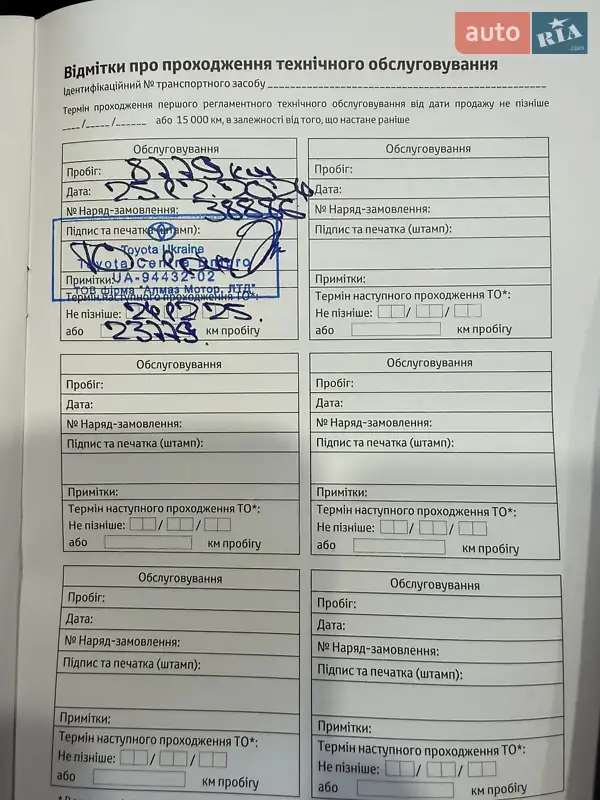 auto RIA .com
Відмітки про проходження технічного обслуговування
Ідентифікаційний № транспортного засобу
Термін проходження першого регламентного технічного обслуговування від дати продажу не пізніше
___/____/_____ або 15 000 км, в залежності від того, що настане раніше
Обслуговування
Пробіг: 8779 км
Дата: 25.
№ Наряд-замовлення: 38886
Підпис та печатка (штамп):
Toyota Ukraine
Toyota Centre Dnipro
UA-94432-02
Примітки:
ТОВ фірма "Алмаз Мотор, ЛТД"
Термін наступного проходження ТО*:
Не пізніше:
або 23779 км пробігу
Обслуговування
Пробіг:
Дата:
№ Наряд-замовлення:
Підпис та печатка (штамп):
Примітки:
Термін наступного проходження ТО*:
Не пізніше: / /
або км пробігу
Обслуговування
Пробіг:
Дата:
№ Наряд-замовлення:
Підпис та печатка (штамп):
Примітки:
Термін наступного проходження ТО*:
Не пізніше: / /
або км пробігу
Обслуговування
Пробіг:
Дата:
№ Наряд-замовлення:
Підпис та печатка (штамп):
Примітки:
Термін наступного проходження ТО*:
Не пізніше: / /
або км пробігу
Обслуговування
Пробіг:
Дата:
№ Наряд-замовлення:
Підпис та печатка (штамп):
Примітки:
Термін наступного проходження ТО*:
Не пізніше: / /
або км пробігу
Обслуговування
Пробіг:
Дата:
№ Наряд-замовлення:
Підпис та печатка (штамп):
Примітки:
Термін наступного проходження ТО*:
Не пізніше: / /
або км пробігу